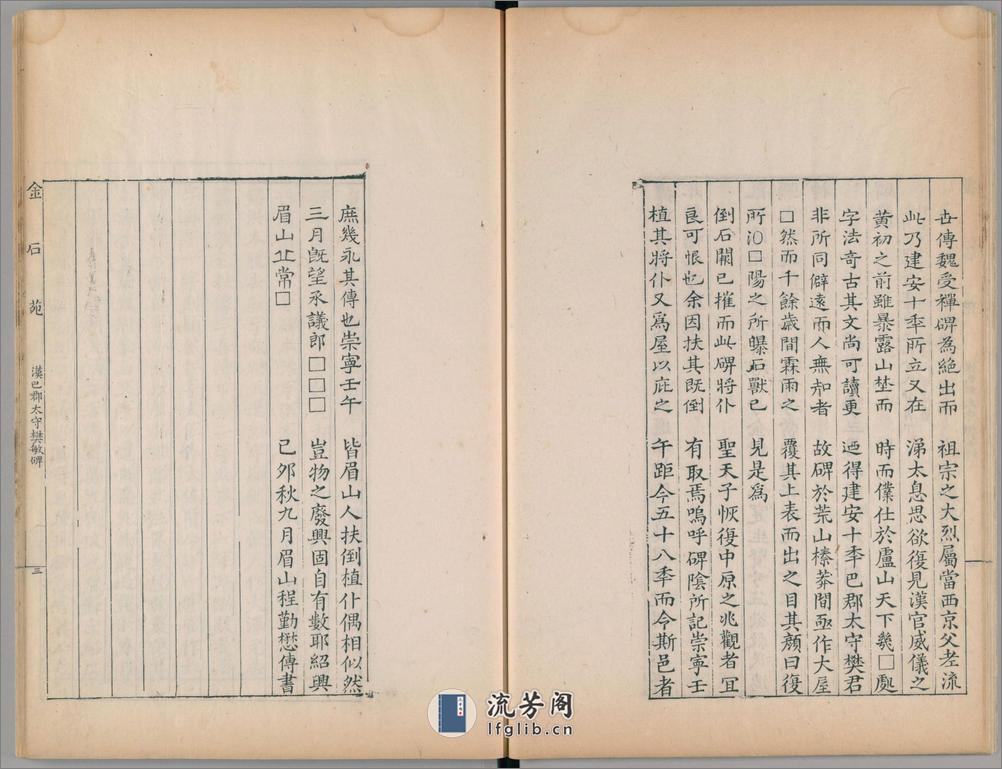 世傳魏受禪碑為絕出而
此乃建安十秊所立又在
黃初之前雖暴露山埜而
字法奇古其文尚可讀更
非所同僻遠而人無知者
□然而千餘歲間霖雨之
所□陽之所曝石獸已
倒石闕已摧而此碑將仆
良可恨也余因扶其旣倒
植其將仆又為屋以庇之
庶幾永其傳也崇寧壬午
三月旣望承議郎□□□
眉山丘常□
祖宗之大烈屬當西京父老流
涕太息思欲復見漢官威儀之
時而僕仕於盧山天下幾□處
迺得建安十秊巴郡太守樊君
故碑於荒山榛莽間亟作大屋
覆其上表而出之目其顏曰復
見是為
聖天子恢復中原之兆觀者宜
有取焉嗚呼碑陰所記崇寧壬
午距今五十八秊而今斯邑者
皆眉山人扶倒植仆偶相似然
豈物之廢興固自有數耶紹興
己夘秋九月眉山程勤懋傳書
金石苑
漢巴郡太守樊敏碑
三
流芳阁
lfglib.cn